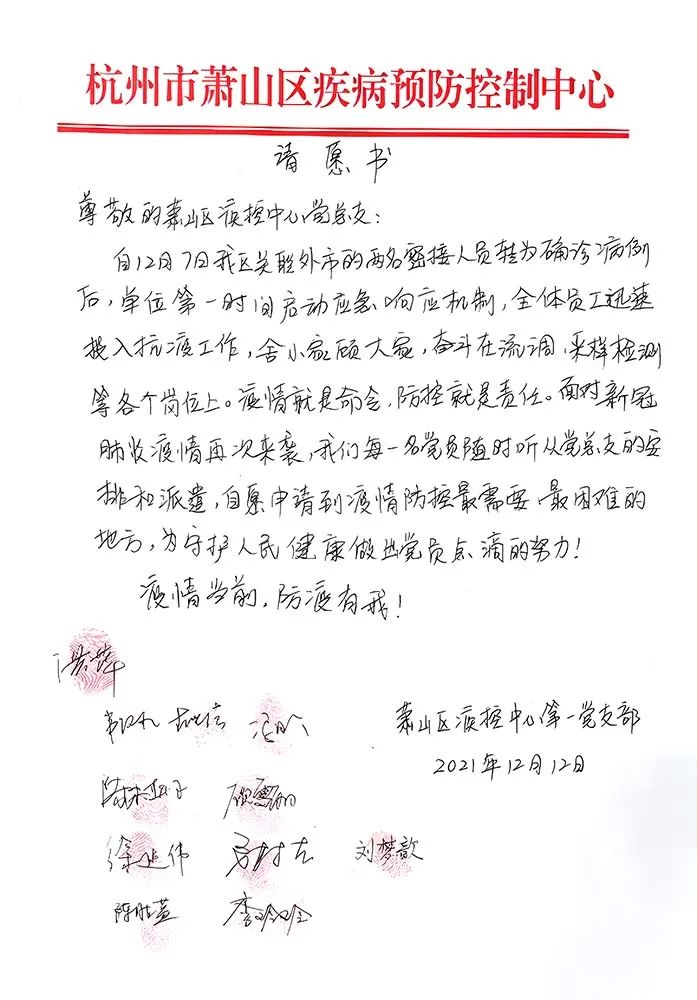 杭州市萧山区疾病预防控制中心
请愿书
尊敬的萧山区疾控中心党总支：
自12月7日我区关联外市的两名密接人员转为确诊病例
后，单位第一时间启动应急响应机制，全体员工迅速
投入抗疫工作，舍小家顾大家，奋斗在流调、采样检测
等各个岗位上。疫情就是命令，防控就是责任。面对新冠
肺炎疫情再次来袭，我们每一名党员随时听从党总支的安
排和派遣，自愿申请到疫情防控最需要、最困难的
地方，为守护人民健康做出党员点滴的努力！
疫情当前，防疫有我！
萧山区疾控中心第一党支部
2021年12月12日
徐延伟 刘梦歆